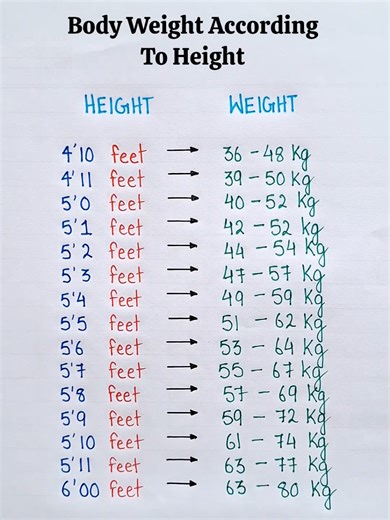 Body Weight According
To Height
HEIGHT WEIGHT
4'10 feet → 36 - 48 Kg
4'11 feet → 39 - 50 Kg
5'0 feet → 40 - 52 Kg
5'1 feet → 42 - 52 Kg
5'2 feet → 44 - 54 Kg
5'3 feet → 47 - 57 Kg
5'4 feet → 49 - 59 Kg
5'5 feet → 51 - 62 Kg
5'6 feet → 53 - 64 Kg
5'7 feet → 55 - 67 Kg
5'8 feet → 57 - 69 Kg
5'9 feet → 59 - 72 Kg
5'10 feet → 61 - 74 Kg
5'11 feet → 63 - 77 Kg
6'00 feet → 63 - 80 Kg